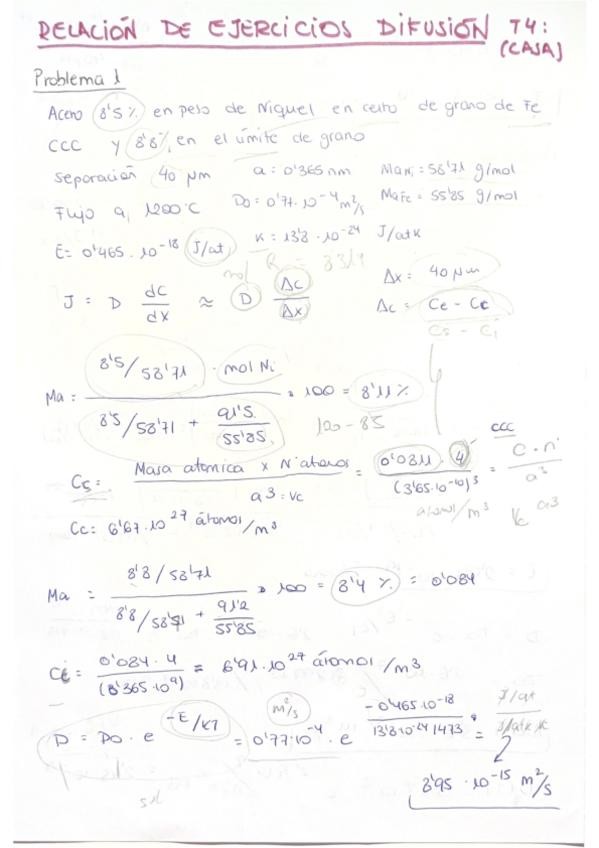 RELACIÓN DE EJERCICIOS DIFUSIÓN T4:
(CASA)
Problema 1
Acero 8'5 % en peso de Niquel en centro de grano de Fe
CCC y 8'8% en el límite de grano
separación 40 µm a: 0'365 nm Ma Ni: 58'71 g/mol
Flujo a 1200°C D0: 0'77·10^-4 m²/s Ma Fe = 55'85 g/mol
E = 0'465·10^-18 J/at K = 13'8·10^-24 J/at K
mol R =
J = D dc/dx ≈ D Δc/Δx Δx: 40 µm
Δc: Ce - Cc
Cs - Ci
Ma: (8'5/58'71 · mol Ni) / (8'5/58'71 + 91'5/55'85) · 100 = 8'11 %
100 - 8'5
Cc: Masa atomica x N átomos / a³ = Vc = 0'0811 · 4 / (3'65·10^-10)³ = C·n / a³
CCC
átomos/m³ Vc a³
Cc: 6'67·10^27 átomos/m³
Ma = (8'8/58'71) / (8'8/58'71 + 91'2/55'85) · 100 = 8'4 % = 0'084
Ce = 0'084·4 / (0'365·10^9) = 6'91·10^27 átomos/m³
D = D0 · e^-E/KT = 0'77·10^-4 · e^(-0'465·10^-18 / 13'8·10^-24 1473) =
m²/s
J/at
J/at K · K
8'95 · 10^-15 m²/s